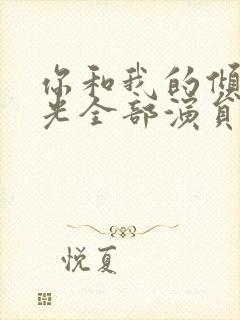 你和我的倾
光全部演员
悦夏